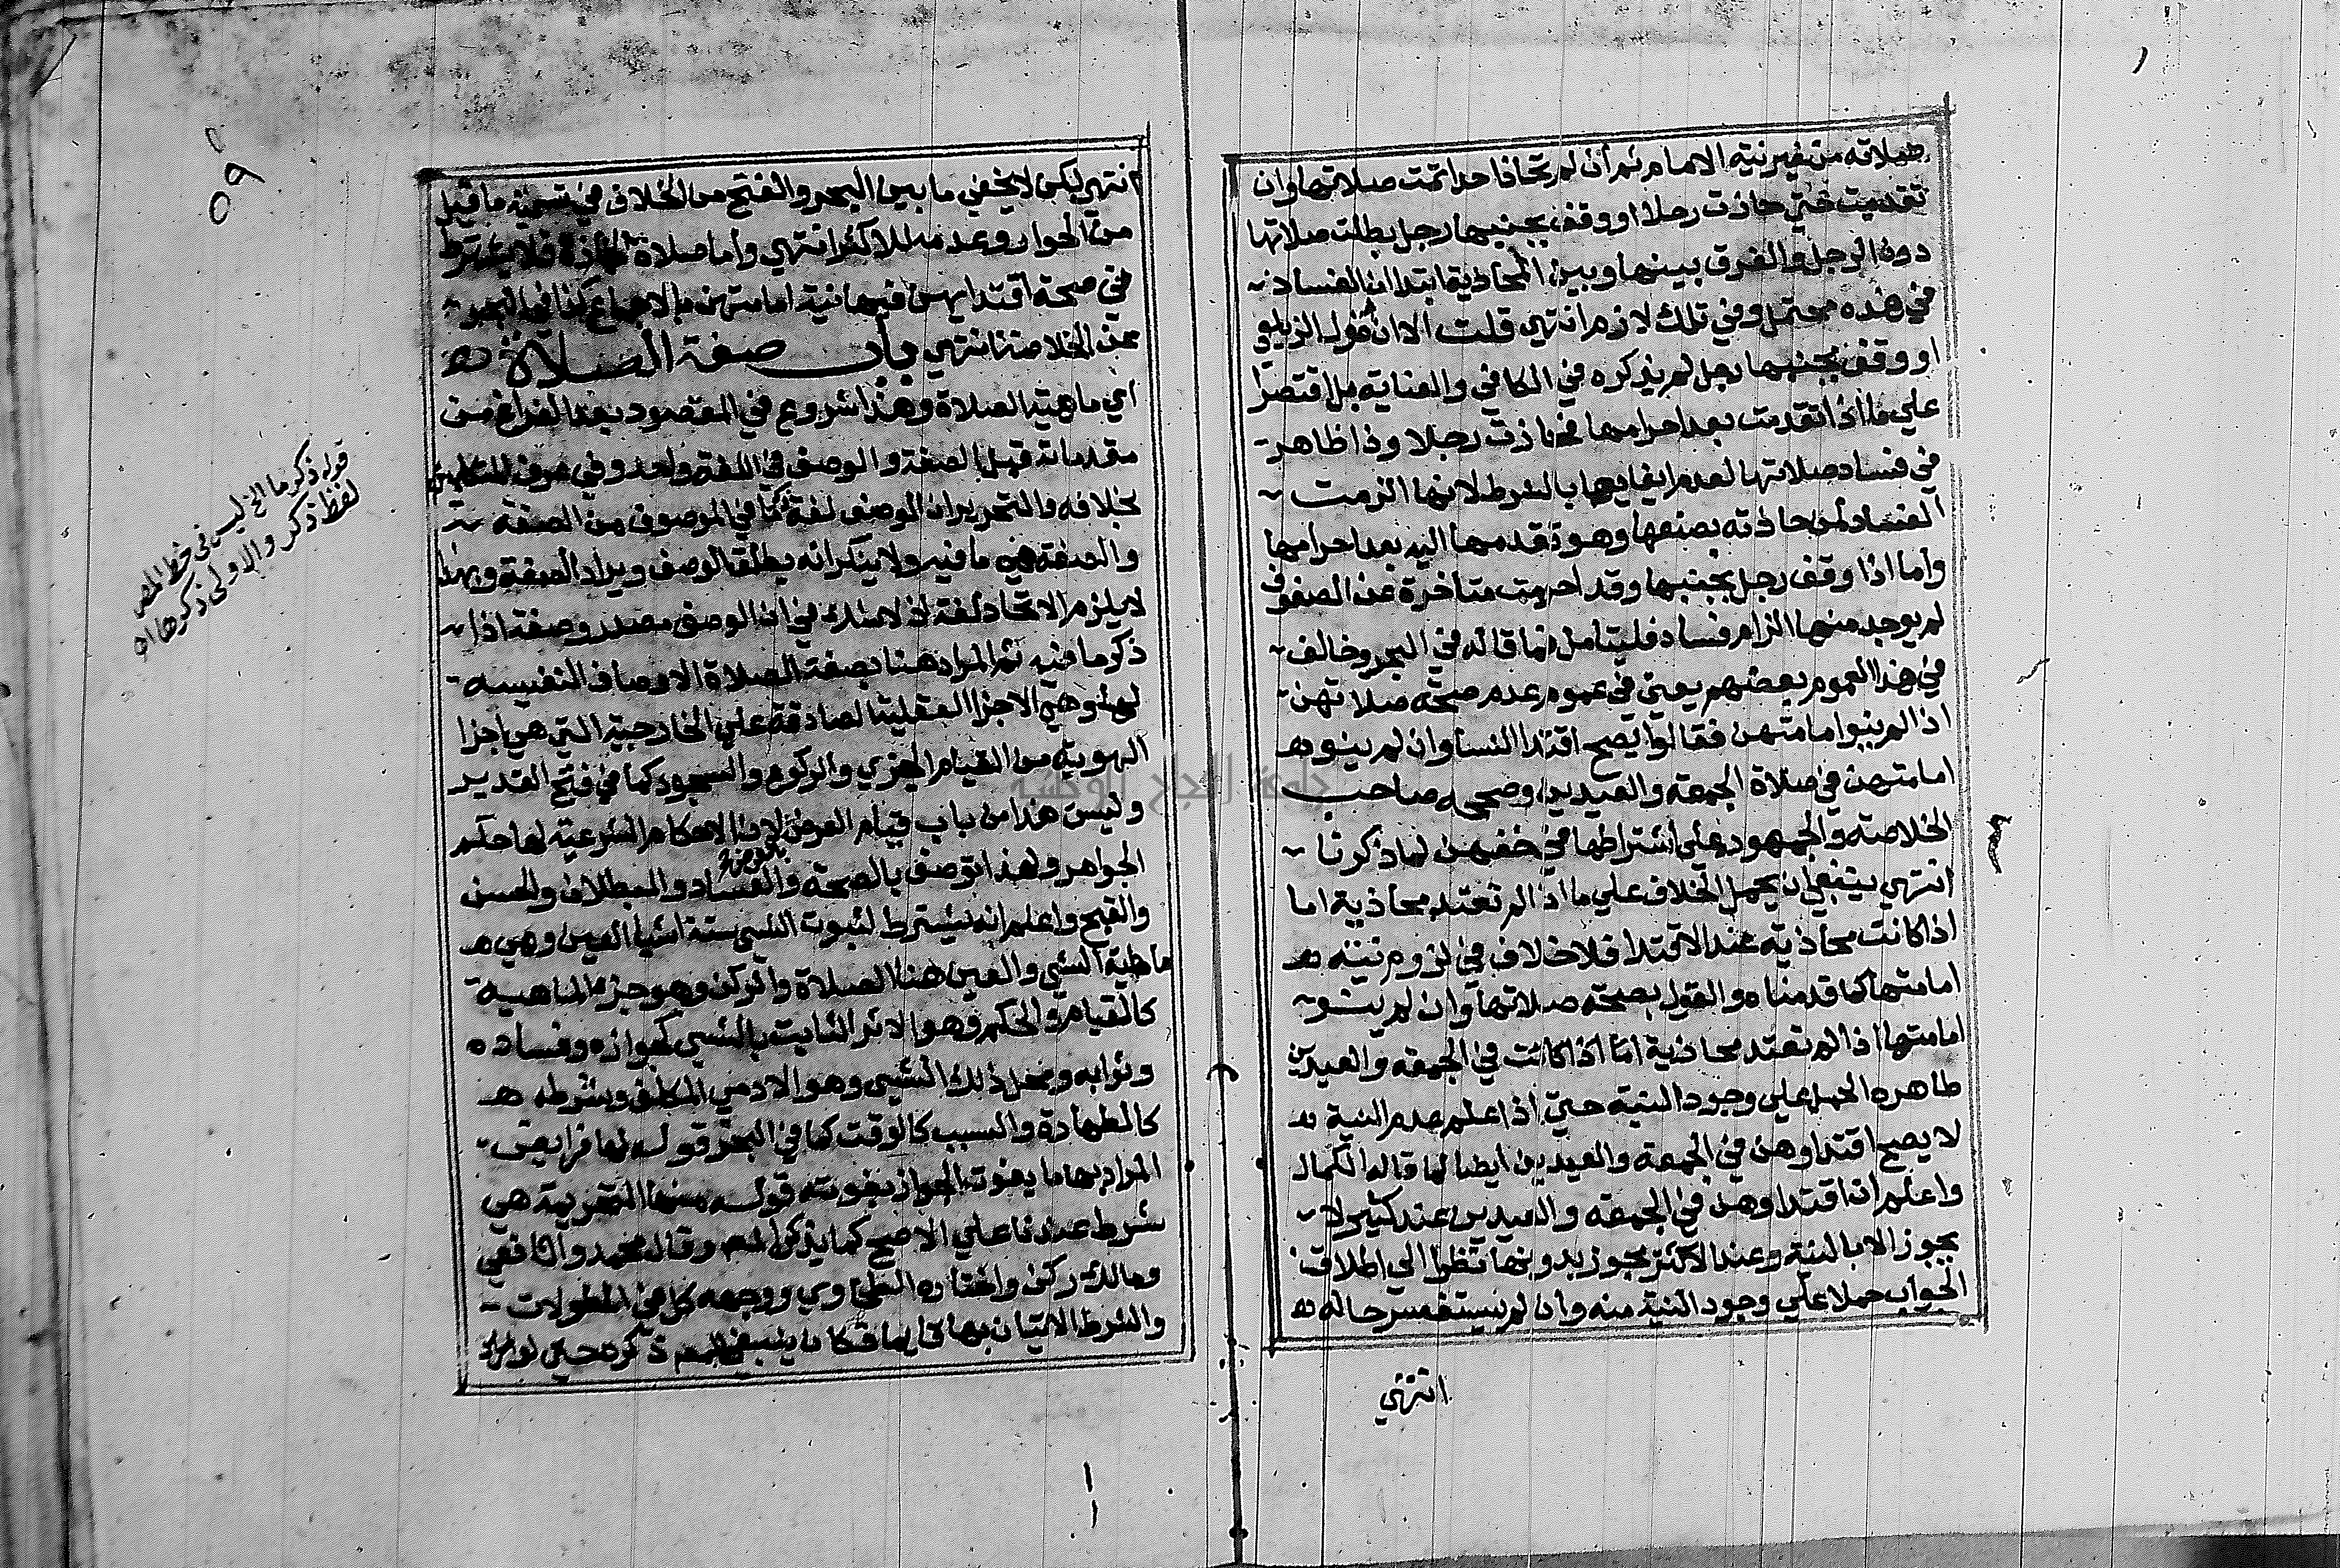 صلاته من غير نية الامام ثم ان لم تحاذ احدا تمت صلاتها وان
تقدمت حتى حاذت رجلا او وقف بجنبها رجل بطلت صلاتها
دون الرجل والفرق بينها وبين المحاذية ابتدا ان الفساد
في هذه محتمل وفي تلك لازم انتهى قلت الا ان قول الزيلعي
او وقف بجنبها رجل لم يذكره في الكافي والعناية بل اقتصرا
علي ما اذا تقدمت بعد احرامها فحاذت رجلا وذا ظاهر
في فساد صلاتها لعدم ايفايها بالشرط لانها الزمت
الفساد لمن حاذته بصنعها وهو تقدمها اليه بعد احرامها
واما اذا وقف رجل بجنبها وقد احرمت متاخرة عن الصفوف
لم يوجد منها الزام فساد فليتامل فما قاله في البحر وخالف
في هذا العموم بعضهم يعني في عموم عدم صحة صلاتهن
اذا لم ينوا امامتهن فقالوا يصح اقتدا النسا وان لم ينو
امامتهن في صلاة الجمعة والعيدين وصححه صاحب
الخلاصة والجمهور علي اشتراطها في حقهن لما ذكرنا
انتهي ينبغي ان يحمل الخلاف علي ما اذا لم تقتد محاذية اما
اذا كانت محاذية عند الاقتدا فلا خلاف في لزوم نية
امامتها كما قدمناه والقول بصحة صلاتها وان لم ينو
امامتها اذا لم تقتد محاذية اما اذا كانت في الجمعه والعيدين
ظاهره الحمل علي وجود النية حتي اذا علم عدم النية
لا يصح اقتداوهن في الجمعة والعيدين ايضا لما قاله الكمال
واعلم ان اقتداوهن في الجمعه والعيدين عند كثير لا
يجوز الا بالنية وعند الاكثر يجوز بدونها نظرا الي اطلاق
الجواب حملا علي وجود النية منه وان لم يستفسر حاله
انتهي
انتهى لكن لا يخفي ما بين البحر والفتح من الخلاف في تسمية ما قيل
من الجواز وعدمه للاكثر انتهي واما صلاة الجنازة فلا يشترط
في صحة اقتدايهن فيها نية امامتهن بالاجماع كذا في البحر
عن الخلاصة انتهي باب صفة الصلاة
اي ماهية الصلاة وهذا شروع في المقصود بعد الفراغ من
مقدماته قيل الصفة والوصف في اللغة واحد وفي عرف المتكلمين
بخلافه والتحرير ان الوصف لغة ذكر ما في الموصوف من الصفة
والصفة هي ما فيه ولا ينكر انه يطلق الوصف ويراد الصفة وبهذا
لا يلزم الاتحاد لغة اذ لا شك في ان الوصف مصدر وصفه اذا
ذكر ما فيه ثم المراد هنا بصفة الصلاة الاوصاف النفسية
لها وهي الاجزا العقلية الصادقة علي الخارجية التي هي اجزا
الهوية من القيام الجزي والركوع والسجود كما في فتح القدير
وليس هذا من باب قيام العرض بالعرض لان الاحكام الشرعية لها حكم
الجواهر ولهذا توصف بالصحة والفساد والبطلان والحسن
والقبح واعلم انه يشترط لثبوت الشي ستة اشيا العين وهي
ماهية الشي والعين هنا الصلاة والركن وهو جزء الماهية
كالقيام والحكم وهو الاثر الثابت بالشي كجوازه وفساده
وثوابه ومحل ذلك الشيي وهو الادمي المكلف وشرطه
كالطهارة والسبب كالوقت كما في البحر قوله لها فرايض
المراد بها ما يفوت الجواز بفوته قوله منها التحريمة هي
شرط عندنا علي الاصح كما يذكره المص وقال محمد والشافعي
ومالك ركن واختاره الطحاوي ووجهه كل في المطولات
والشرط الاتيان بها قايما فكان ينبغي للمص ذكره حتي لو
قوله ذكر ما الخ ليس في خط المص
لفظ ذكر والاولى ذكرها اه
٥٩
جامعة النجاح الوطنية